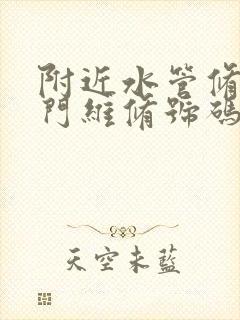 附近水管修
門維修號碼
天空未藍